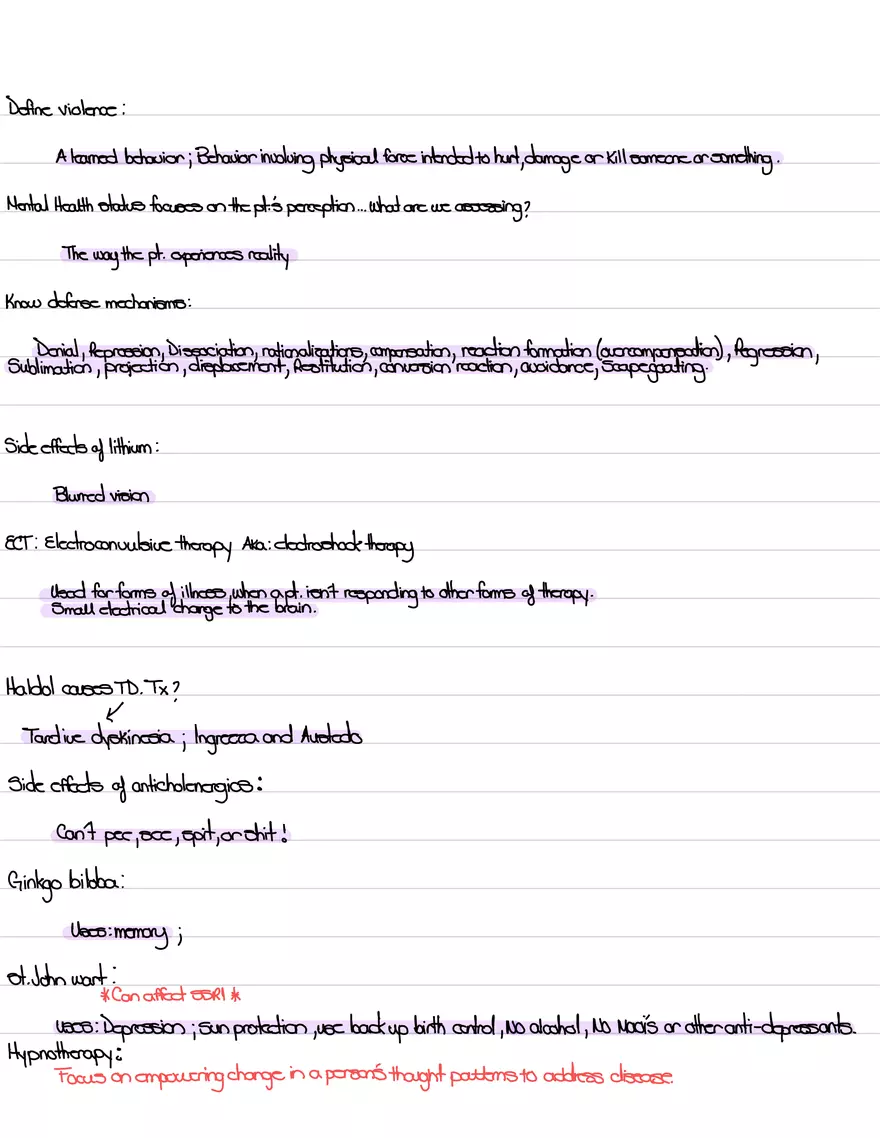 Define violence:
A learned behavior; Behavior involving physical force intended to hurt, damage or Kill someone or something.
Mental Health status focuses on the pt.'s perception... What are we assessing?
The way the pt. experiences reality
Know defense mechanisms:
Denial, Repression, Dissociation, rationalizations, compensation, reaction formation (overcompensation), Regression,
Sublimation, projection, displacement, Restitution, conversion reaction, avoidance, Scapegoating.
Side effects of lithium:
Blurred vision
ECT: Electroconvulsive therapy Aka: electroshock therapy
Used for forms of illness, when a pt. isn't responding to other forms of therapy.
Small electrical charge to the brain.
Haldol causes TD. Tx?
Tardive dyskinesia; Ingrezza and Austedo
Side effects of anticholenergics:
Can't pee, see, spit, or shit!
Ginkgo bibba:
Uses: memory;
St. John wart:
*Can affect SSRI*
Uses: Depression; sun protection, use back up birth control, No alcohol, No Maoi's or other anti-depressants.
Hypnotherapy:
Focus on empowering change in a person's thought patterns to address disease.